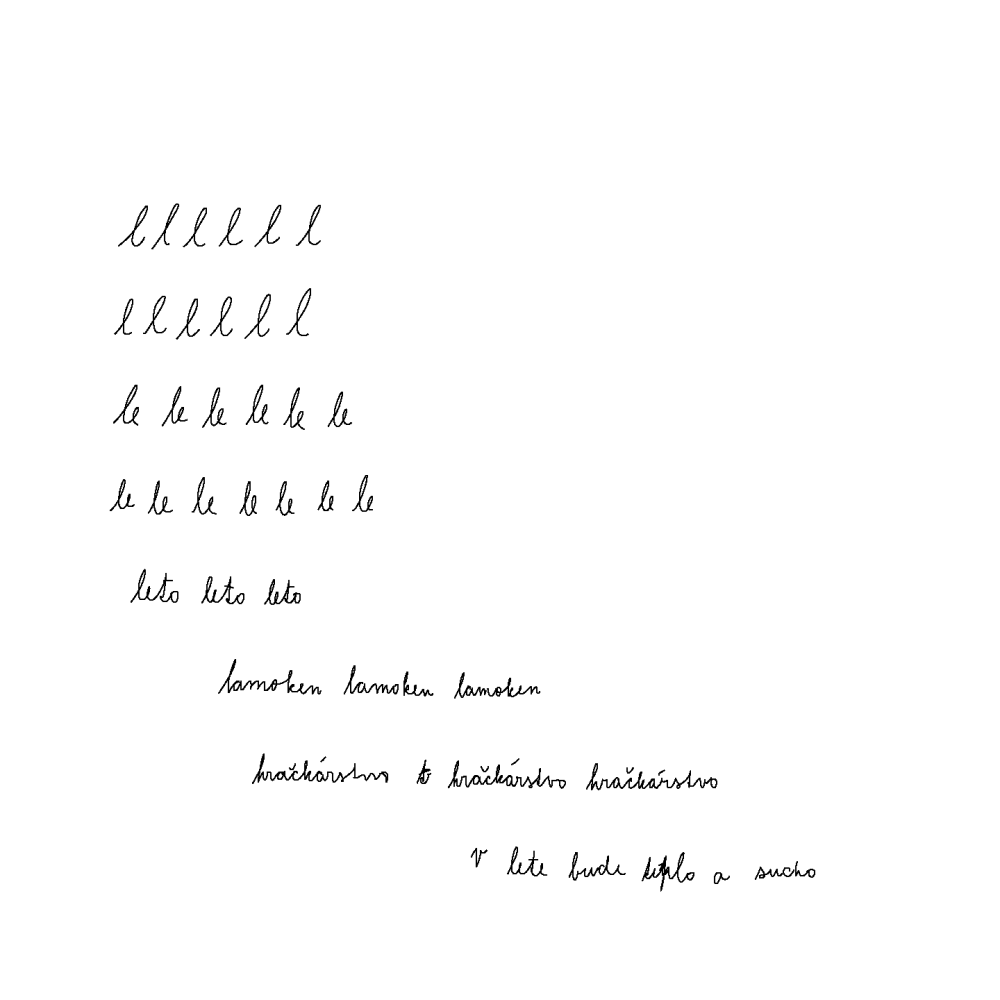 l l l l l l
l l l l l l
le le le le le le
le le le le le le le
leto leto leto
lamoken lamoken lamoken
hračkárstvo hračkárstvo hračkárstvo
v lete bude teplo a sucho